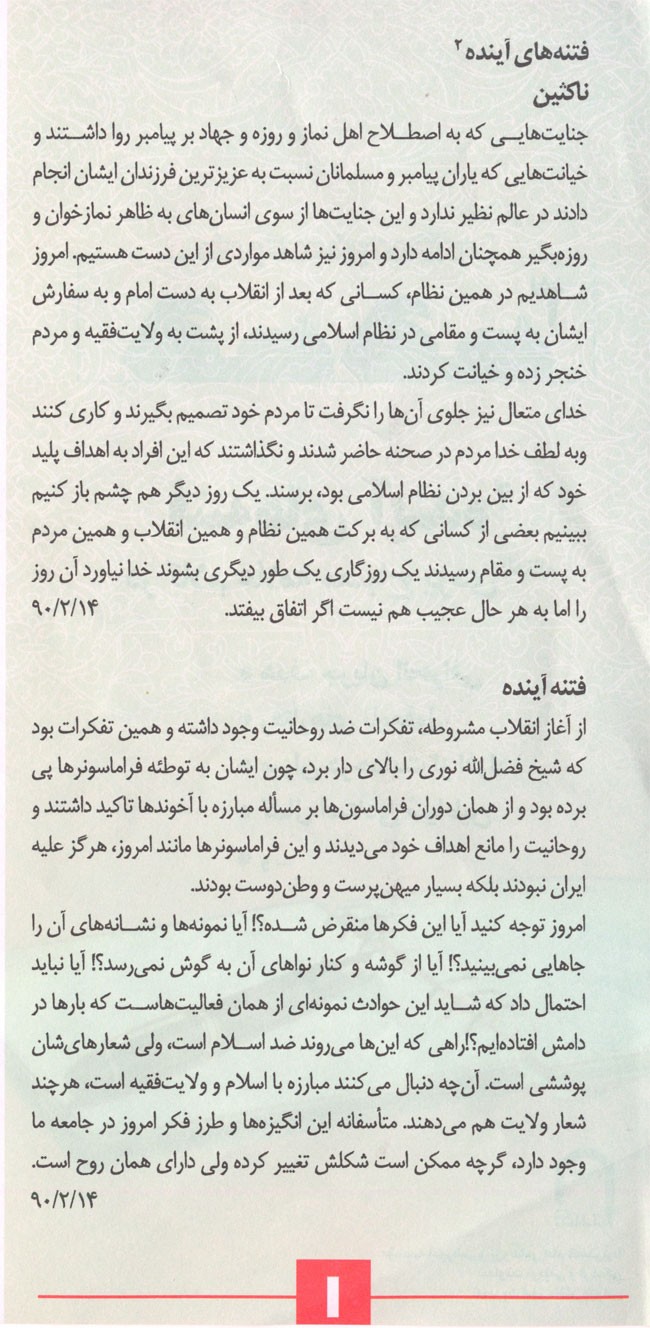 فتنه‌های آینده ۲
ناکثین
جنایت‌هایـی که به اصطـلاح اهل نماز و روزه و جهاد بر پیامبر روا داشـتند و
خیانت‌هایی که یاران پیامبر و مسلمانان نسبت به عزیزترین فرزندان ایشان انجام
دادند در عالم نظیر ندارد و این جنایت‌ها از سوی انسان‌های به ظاهر نمازخوان و
روزه‌بگیر همچنان ادامه دارد و امروز نیز شاهد مواردی از این دست هستیم. امروز
شـاهدیم در همین نظام، کسـانی که بعد از انقلاب به دست امام و به سفارش
ایشان به پست و مقامی در نظام اسلامی رسیدند، از پشت به ولایت‌فقیه و مردم
خنجر زده و خیانت کردند.
خدای متعال نیز جلوی آن‌ها را نگرفت تا مردم خود تصمیم بگیرند و کاری کنند
وبه لطف خدا مردم در صحنه حاضر شدند و نگذاشتند که این افراد به اهداف پلید
خود که از بین بردن نظام اسلامی بود، برسند. یک روز دیگر هم چشم باز کنیم
ببینیم بعضی از کسانی که به برکت همین نظام و همین انقلاب و همین مردم
به پست و مقام رسیدند یک روزگاری یک طور دیگری بشوند خدا نیاورد آن روز
را اما به هر حال عجیب هم نیست اگر اتفاق بیفتد. ۹۰/۲/۱۴
فتنه آینده
از آغاز انقلاب مشروطه، تفکرات ضد روحانیت وجود داشته و همین تفکرات بود
که شیخ فضل‌الله نوری را بالای دار برد، چون ایشان به توطئه فراماسونرها پی
برده بود و از همان دوران فراماسون‌ها بر مسأله مبارزه با آخوندها تاکید داشتند و
روحانیت را مانع اهداف خود می‌دیدند و این فراماسونرها مانند امروز، هرگز علیه
ایران نبودند بلکه بسیار میهن‌پرست و وطن‌دوست بودند.
امروز توجه کنید آیا این فکرها منقرض شـده؟! آیا نمونه‌ها و نشـانه‌های آن را
جاهایی نمی‌بینید؟! آیا از گوشه و کنار نواهای آن به گوش نمی‌رسد؟! آیا نباید
احتمال داد که شـاید این حوادث نمونه‌ای از همان فعالیت‌هاسـت که بارها در
دامش افتاده‌ایم؟!راهی که این‌ها می‌روند ضد اسـلام است، ولی شعارهای‌شان
پوششی است. آن‌چه دنبال می‌کنند مبارزه با اسلام و ولایت‌فقیه است، هرچند
شعار ولایت هم می‌دهند. متأسفانه این انگیزه‌ها و طرز فکر امروز در جامعه ما
وجود دارد، گرچه ممکن است شکلش تغییر کرده ولی دارای همان روح است.
۹۰/۲/۱۴
۱